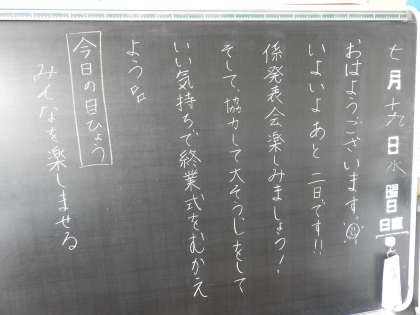 七月十九日水曜日
日直
おはようございます。
いよいよあと二日です!!
係発表会楽しみましょう!
そして、協力して大そうじをして
いい気持ちで終業式をむかえ
よう。
今日の目ひょう
みんなを楽しませる